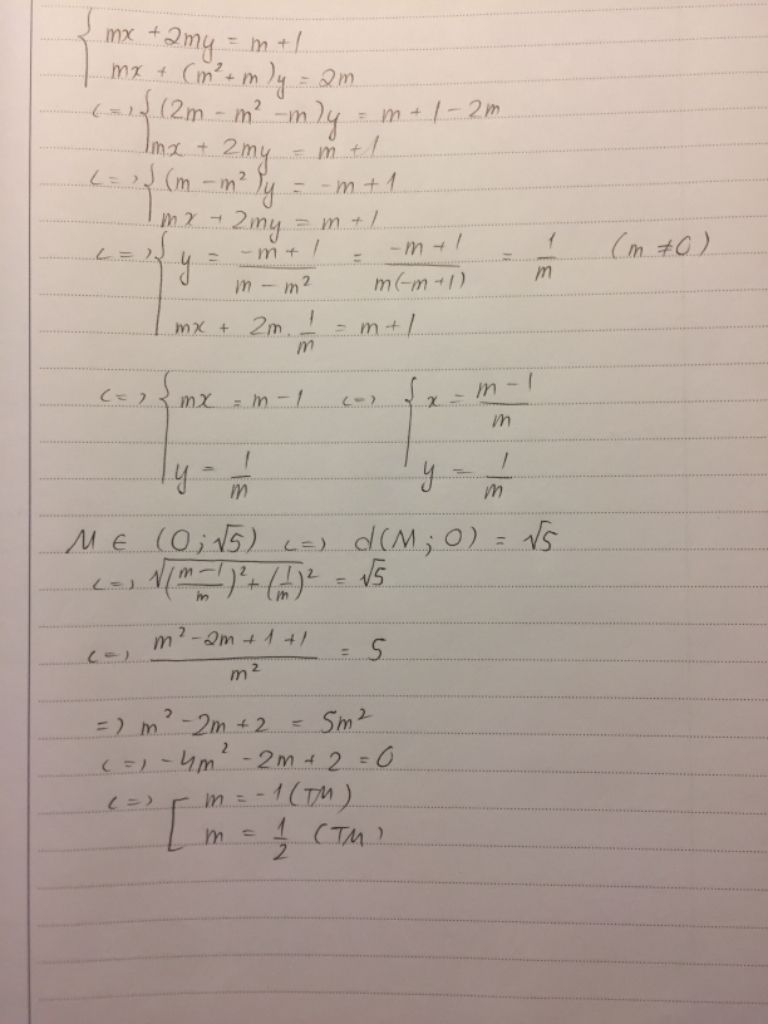 { mx + 2my = m + 1
mx + (m² + m)y = 2m
<=> { (2m - m² - m)y = m + 1 - 2m
mx + 2my = m + 1
<=> { (m - m²)y = -m + 1
mx + 2my = m + 1
<=> { y = \frac{-m + 1}{m - m²} = \frac{-m + 1}{m(-m + 1)} = \frac{1}{m} (m ≠ 0)
mx + 2m . \frac{1}{m} = m + 1
<=> { mx = m - 1 <=> { x = \frac{m - 1}{m}
y = \frac{1}{m} y = \frac{1}{m}
M ∈ (O; √5) <=> d(M; O) = √5
<=> \sqrt{(\frac{m - 1}{m})² + (\frac{1}{m})²} = √5
<=> \frac{m² - 2m + 1 + 1}{m²} = 5
=> m² - 2m + 2 = 5m²
<=> -4m² - 2m + 2 = 0
<=> [ m = -1 (TM)
m = \frac{1}{2} (TM)